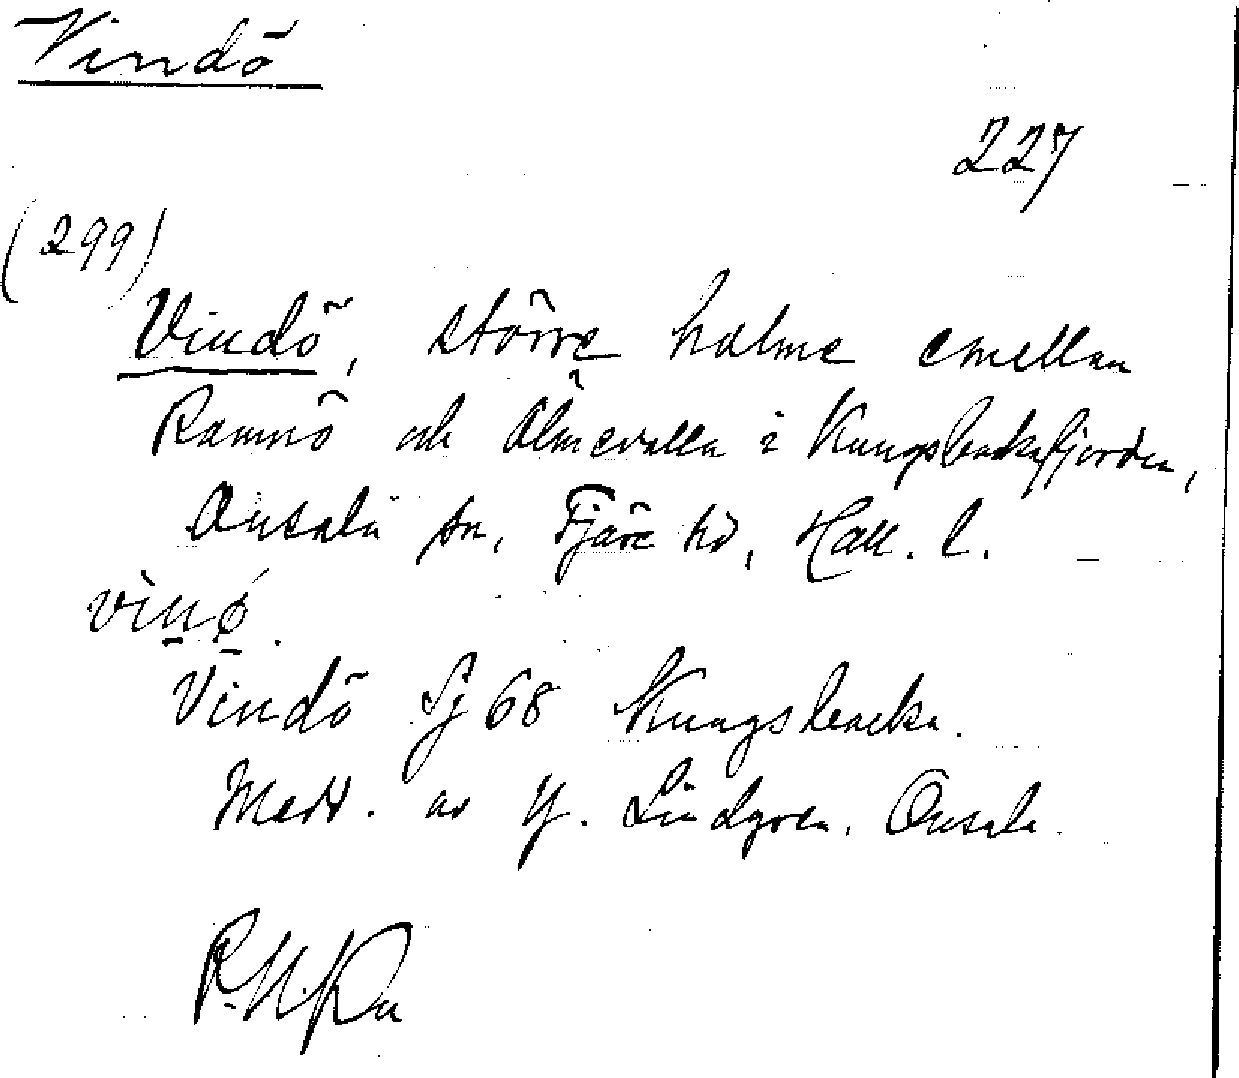 Vindö
227
(299)
Vindö, större holme emellan
Ramnö och Ölmevalla i Kungsbackafjorden,
Onsala sn, Fjäre hd, Hall. l.
Vindö Sj 68 Kungsbacka.
Medd. av Y. Lindgren, Onsala.